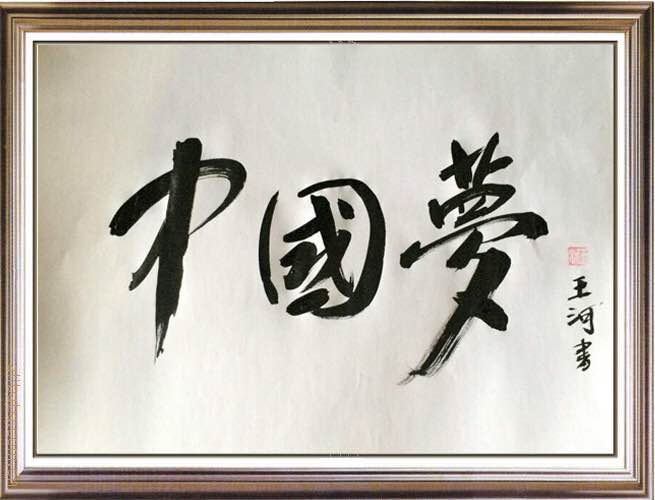 中國夢
王河书